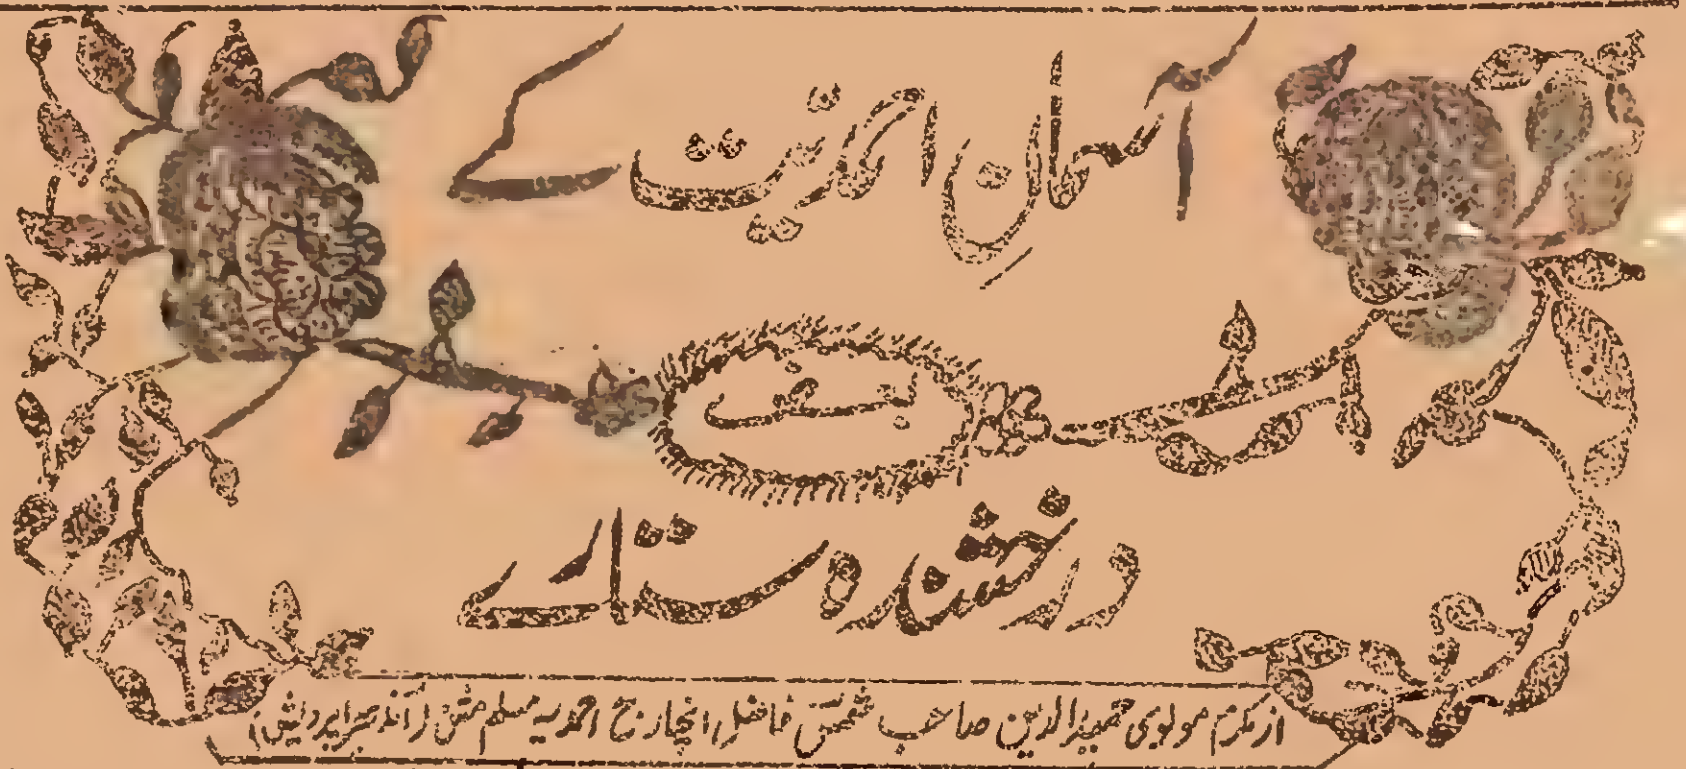 آسمان احمدیت کے
بہت
درخشندہ ستارے
از مکرم مولوی حمید الدین صاحب شمس فاضل انچارج احمدیہ مسلم مشن (آندھرا پردیش)